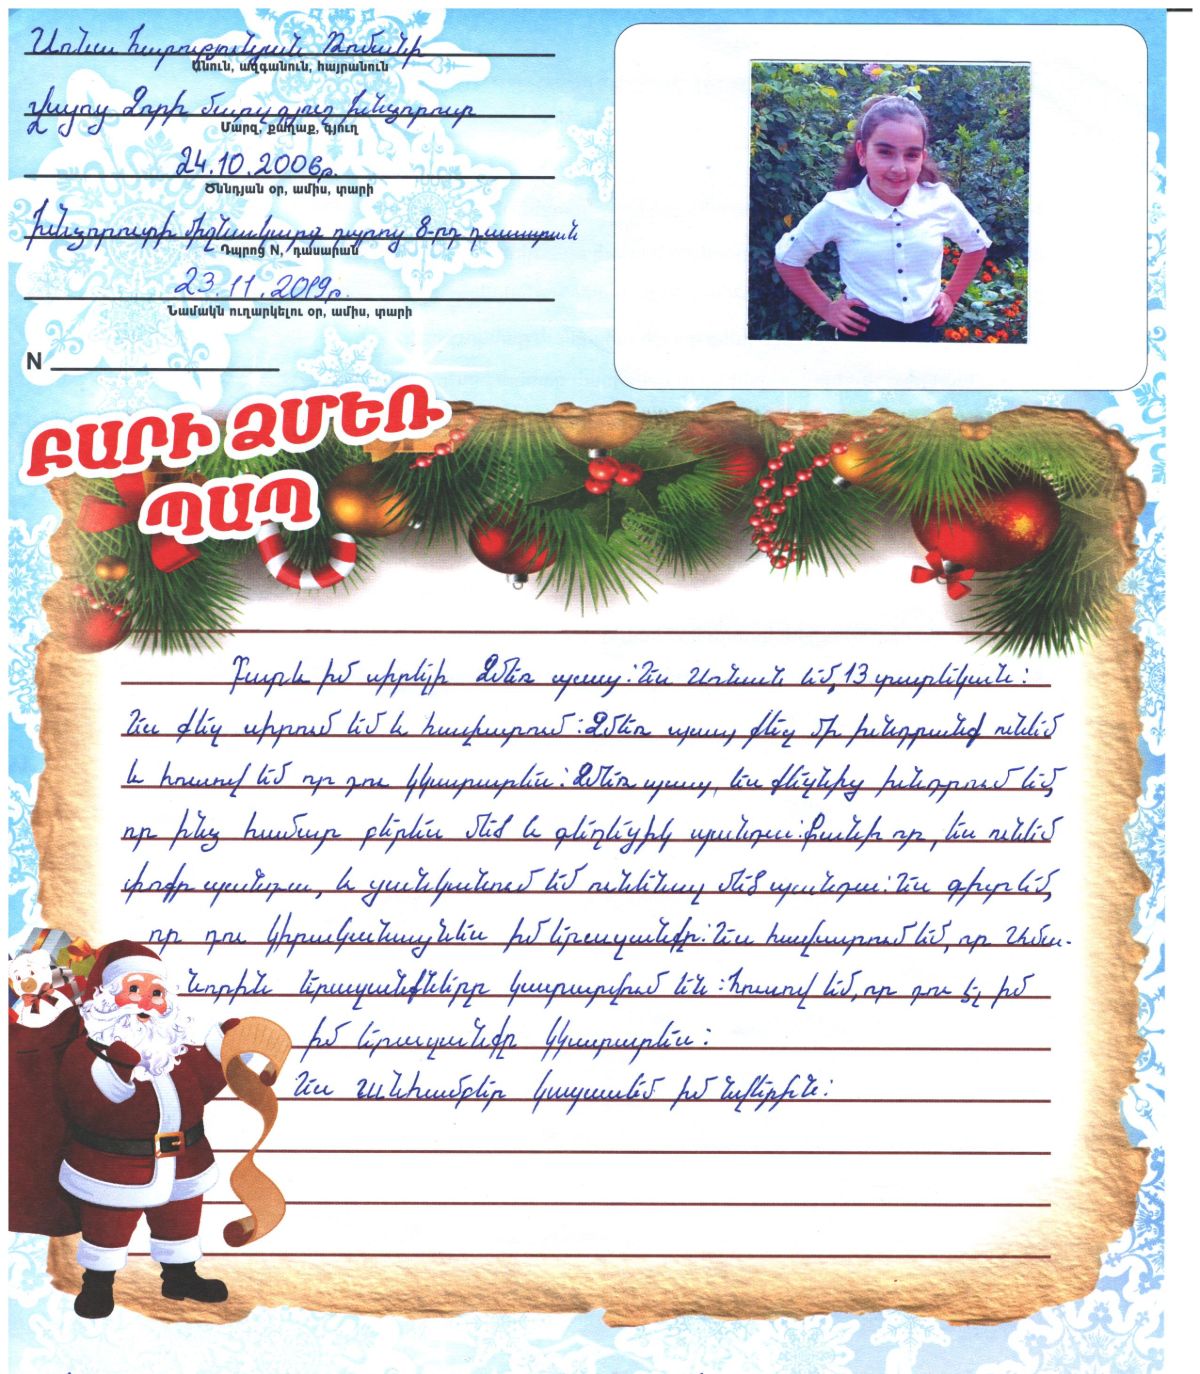 Աննա Հարությունյան Ռոմանի
Անուն, ազգանուն, հայրանուն
Վայոց Ձորի մարզ գյուղ Խնձորուտ
Մարզ, քաղաք, գյուղ
24.10.2006թ.
Ծննդյան օր, ամիս, տարի
Խնձորուտի միջնակարգ դպրոց 8-րդ դասարան
Դպրոց N, դասարան
23.11.2019թ.
Նամակն ուղարկելու օր, ամիս, տարի
N
ԲԱՐԻ ՁՄԵՌ
ՊԱՊ
Բարև իմ սիրելի Ձմեռ պապ: Ես Աննան եմ, 13 տարեկան:
Ես քեզ սիրում եմ և հավատում: Ձմեռ պապ, քեզ մի խնդրանք ունեմ
և հուսով եմ որ դու կկատարես: Ձմեռ պապ, ես քեզնից խնդրում եմ,
որ ինձ համար բերես մեծ և գեղեցիկ պանդա: Քանի որ, ես ունեմ
փոքր պանդա, և ցանկանում եմ ունենալ մեծ պանդա: Ես գիտեմ,
որ դու կիրականացնես իմ երազանքը: Ես հավատում եմ, որ Ամա-
նորին երազանքները կատարվում են: Հուսով եմ, որ դու էլ իմ
իմ երազանքը կկատարես:
Ես անհամբեր կսպասեմ իմ նվերին: